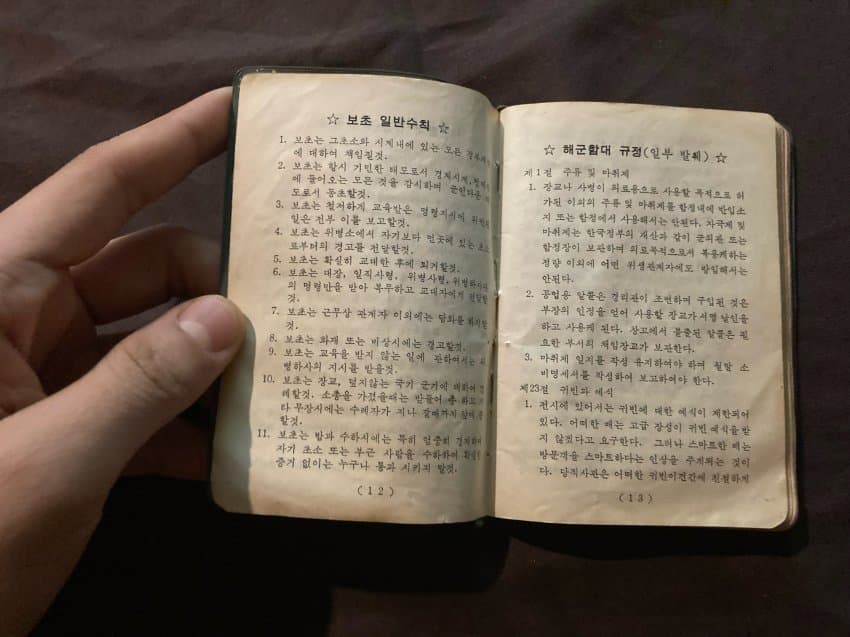 ☆ 보초 일반수칙 ☆
1. 보초는 그초소와 시계내에 있는 모든
에 대하여 책임질것.
2. 보초는 항시 기민한 태도로서 경계시계,
에 들어오는 모든 것을 감시하며 군인다운
도로서 동초할것.
3. 보초는 철저하게 교육받은 명령지시에
일은 전부 이를 보고할것.
4. 보초는 위병소에서 자기보다 먼곳에 있는 초소
로부터의 경고를 전달할것.
5. 보초는 확실히 교대한 후에 퇴거할것.
6. 보초는 대장, 일직사령, 위병사령, 위병하사관
의 명령만을 받아 복무하고 교대자에게 전달할
것.
7. 보초는 근무상 관계자 이외에는 담화를 하지말
것.
8. 보초는 화재 또는 비상시에는 경고할것.
9. 보초는 교육을 받지 않는 일에 관하여서는 위
병하사의 지시를 받을것.
10. 보초는 장교, 덮지않는 국기 군기에 대하여 경
례할것. 소총을 가졌을때는 받들어 총 하고
타 무장시에는 수례자가 지나 갈때까지
할것.
11. 보초는 밤과 수하시에는 특히 엄중히 경계하며
자기 초소 또는 부근 사람을 수하하여 확실한
증거 없이는 누구나 통과 시키지 말것.
(12)
☆ 해군함대 규정(일부 발췌) ☆
제1절 주류 및 마취제
1. 장교나 사병이 의료용으로 사용할 목적으로 허
가된 이외의 주류 및 마취제를 함정내에 반입소
지 또는 함정에서 사용해서는 안된다. 자극제 및
마취제는 한국정부의 재산과 같이 군의관 또는
함정장이 보관하며 의료목적으로서 복용케하는
정량 이외에 어떤 위생관계자에도 방임해서는
안된다.
2. 공업용 알콜은 경리관이 조변하며 구입된 것은
부장의 인정을 얻어 사용할 장교가 서명 날인을
하고 사용케 된다. 창고에서 불출된 알콜은 필
요한 부서의 책임장교가 보관한다.
3. 마취제 일지를 작성 유지하여야하며 월말 소
비명세서를 작성하여 보고하여야 한다.
제23절 귀빈과 예식
1. 전시에 있어서는 귀빈에 대한 예식이 제한되어
있다. 어떠한 때는 고급 장성이 귀빈 예식을 받
지 않겠다고 요구한다. 그러나 스마트한 배는
방문객을 스마트하다는 인상을 주게되는 것이
다. 당직사관은 어떠한 귀빈이건간에 친절하게
(13)